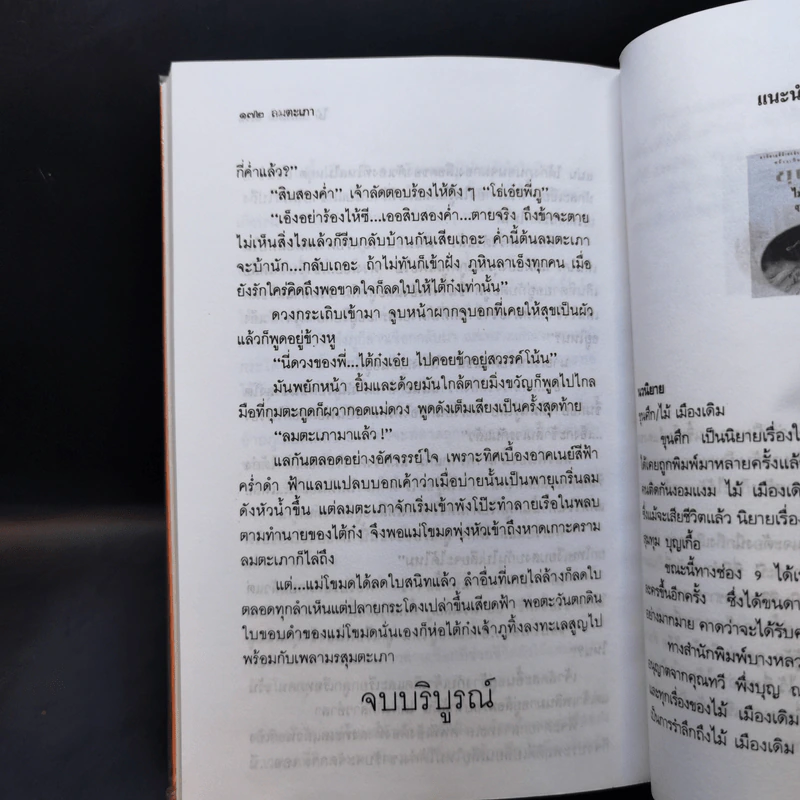 ๑๗๒ ลมตะเภา
กี่ค่ำแล้ว?”
“สิบสองค่ำ” เจ้าลัดตอบร้องไห้ดัง ๆ “โธ่เอ๋ยพี่ภู”
“เอ็งอย่าร้องไห้ซี...เออสิบสองค่ำ...ตายจริง ถึงข้าจะตาย
ไม่เห็นสิ่งไรแล้วก็รีบกลับบ้านกันเสียเถอะ ค่ำนี้ต้นลมตะเภา
จะบ้านัก...กลับเถอะ ถ้าไม่ทันก็เข้าฝั่ง ภูหินลาเอ็งทุกคน เมื่อ
ยังรักใคร่คิดถึงพอขาดใจก็ลดใบให้ไต้ก๋งเท่านั้น”
ดวงกระเถิบเข้ามา จูบหน้าผากจูบอกที่เคยให้สุขเป็นผัว
แล้วก็พูดอยู่ข้างหู
“นี่ดวงของพี่...ไต้ก๋งเอ๋ย ไปคอยข้าอยู่สวรรค์โน้น”
มันพยักหน้า ยิ้มและด้วยมันใกล้ตายมิ่งขวัญก็พูดไปไกล
มือที่กุมตะกูดก็ผวากอดแม่ดวง พูดดังเต็มเสียงเป็นครั้งสุดท้าย
“ลมตะเภามาแล้ว!”
แลกันตลอดอย่างอัศจรรย์ใจ เพราะทิศเบื้องอาคเนย์สีฟ้า
คร่ำดำ ฟ้าแลบแปลบบอกเค้าว่าเมื่อบ่ายนั้นเป็นพายุเกริ่นลม
ดังหัวน้ำขึ้น แต่ลมตะเภาจักเริ่มเข้าพังโป๊ะทำลายเรือในพลบ
ตามทำนายของไต้ก๋ง จึงพอแม่โขมดพุ่งหัวเข้าถึงหาดเกาะคราม
ลมตะเภาก็ไล่ถึง
แต่...แม่โขมดได้ลดใบสนิทแล้ว ลำอื่นที่เคยไล่ล้างก็ลดใบ
ตลอดทุกลำเห็นแต่ปลายกระโดงเปล่าขึ้นเสียดฟ้า พอตะวันตกดิน
ใบขอบดำของแม่โขมดนั่นเองก็ห่อไต้ก๋งเจ้าภูทิ้งลงทะเลสูญไป
พร้อมกับเพลามรสุมตะเภา
จบบริบูรณ์
แนะนำ
นวนิยาย
ขุนศึก/ไม้ เมืองเดิม
ขุนศึก เป็นนิยายเรื่อง
ได้เคยถูกพิมพ์มาหลายครั้งแล้
คนติดกันงอมแงม ไม้ เมืองเดิ
ซึ่งแม้จะเสียชีวิตแล้ว นิยายเรื่อง
สุมทุม บุญเกื้อ
ขณะนี้ทางช่อง ๙ ได้
ละครขึ้นอีกครั้ง ซึ่งได้ขนดา
อย่างมากมาย คาดว่าจะได้รับ
ทางสำนักพิมพ์บางหลว
อนุญาตจากคุณทวี พึ่งบุญ ณ
และทุกเรื่องของไม้ เมืองเดิม
เป็นการรำลึกถึงไม้ เมืองเดิม